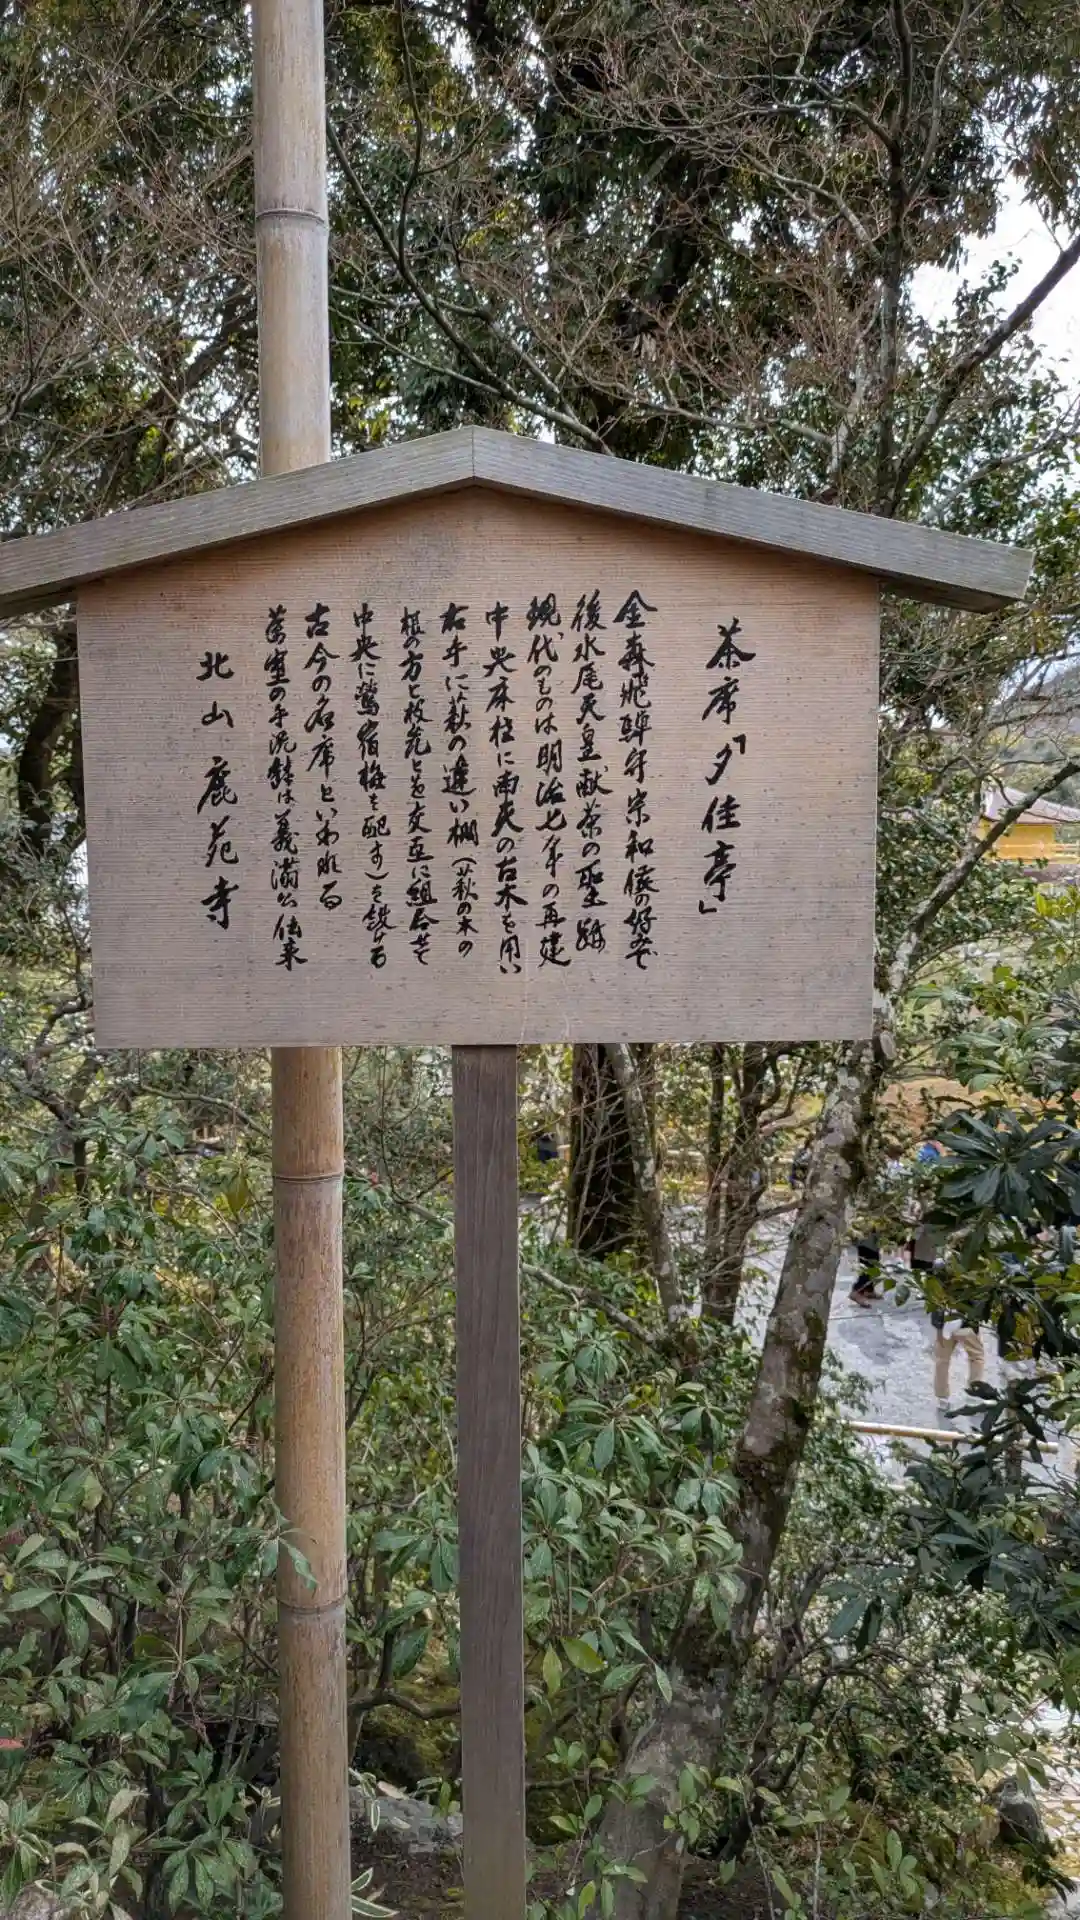 茶席「夕佳亭」
金森飛騨守宗和侯の好みで
後水尾天皇献茶の聖跡
現代のものは明治七年の再建
中央床柱に南天の古木を用い
右手に萩の違い棚(萩の木の
根の方と枝先とを交互に組合せて
中央に鶯宿梅を配す)を設ける
古今の名席といわれる
茶室の手洗鉢は義満公伝来
北山鹿苑寺